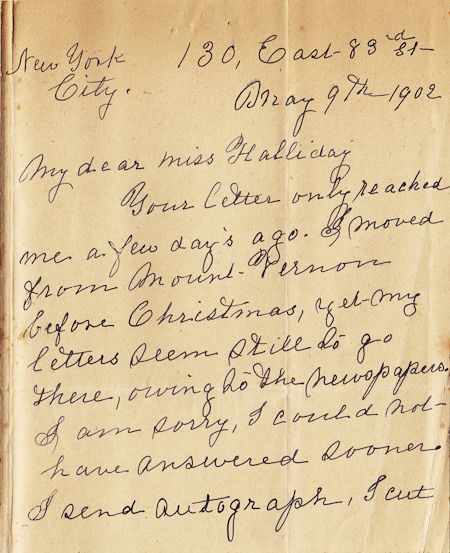 New York 130, East 83rd St
City.
May 9th 1902
My dear Miss Halliday
Your letter only reached
me a few day's ago. I moved
from Mount Vernon
before Christmas, yet my
letters seem still to go
there, owing to the newspapers.
I am sorry, I could not
have answered sooner.
I send autograph, I cut